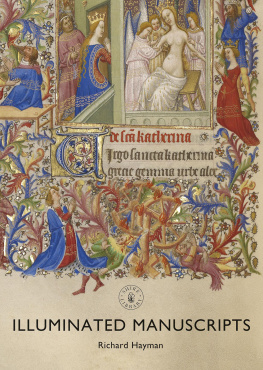 De sca katherina
Virgo sancta katherina
grecie gemma urbe alex
SHIRE
LIBRARY
ILLUMINATED MANUSCRIPTS
Richard Hayman